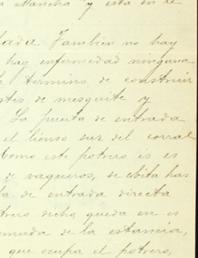 Mancha y está en el
Tambien no hay
hay enfermedad ninguna
termino de construir
postes de mesquite y
La puerta de entrada
el lienso sur del corral
Como este potrero is es
de vaqueros, se evita has
de entrada directa
dicho queda en es
de la estancia,
que ocupa el potrero,